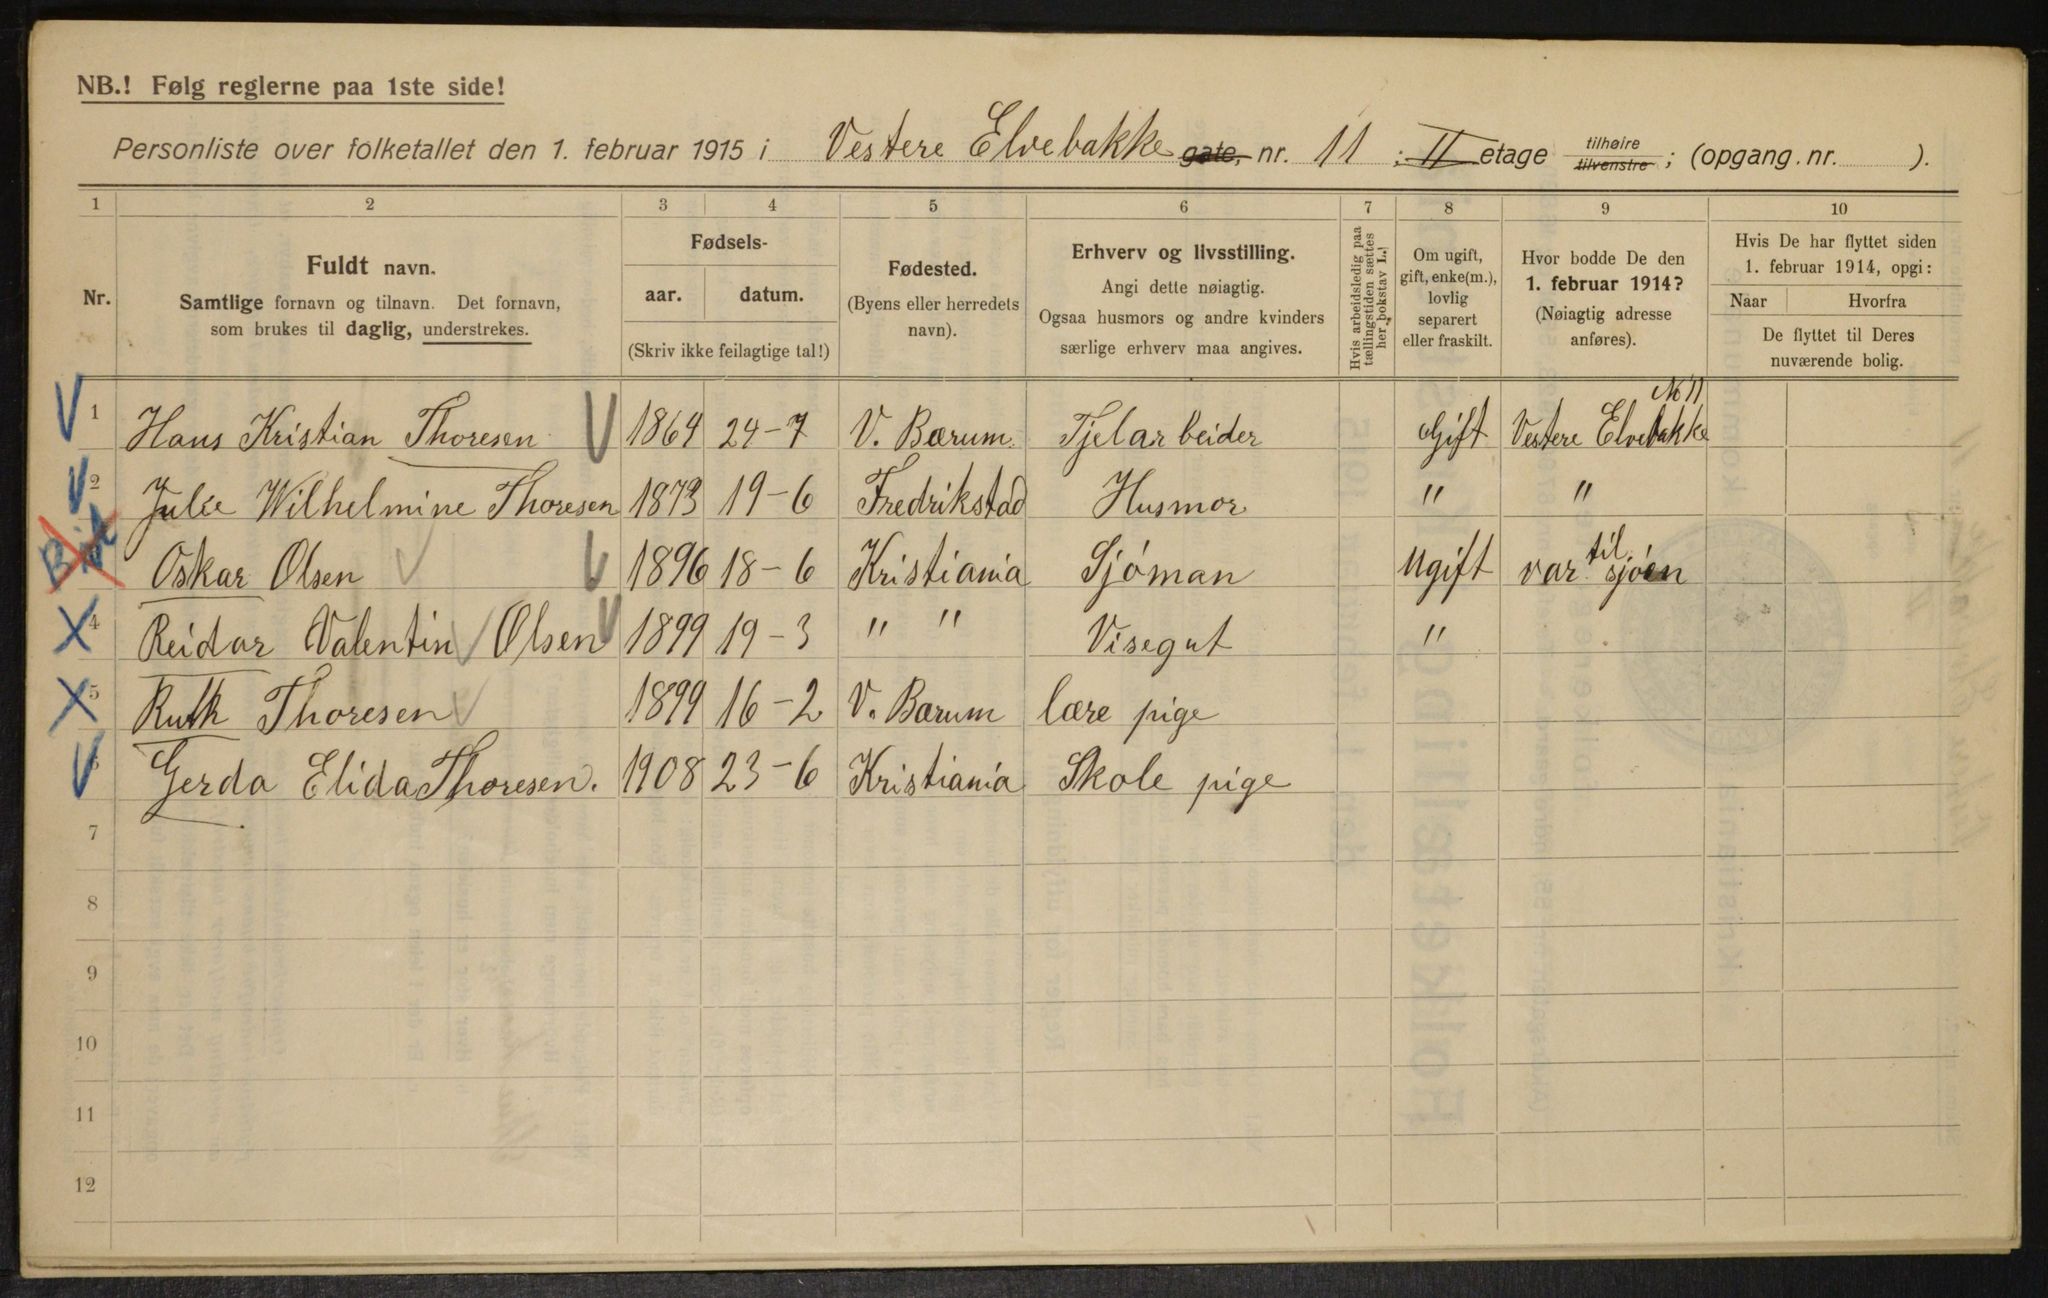 NB.! Følg reglerne paa 1ste side!
Personliste over folketallet den 1. februar 1915 i Vestere Elvebakke gate, nr. 11 ; II etage tilhøire tilvenstre ; (opgang. nr. ).
1 2 3 4 5 6 7 8 9 10
Nr.
Fuldt navn.
Samtlige fornavn og tilnavn. Det fornavn,
som brukes til daglig, understrekes.
Fødsels-
aar. datum.
(Skriv ikke feilagtige tal!)
Fødested.
(Byens eller herredets
navn).
Erhverv og livsstilling.
Angi dette nøiagtig.
Ogsaa husmors og andre kvinders
særlige erhverv maa angives.
Hvis arbeidsledig paa
tællingstiden sættes
her bokstav L.
Om ugift,
gift, enke(m.),
lovlig
separert
eller fraskilt.
Hvor bodde De den
1. februar 1914?
(Nøiagtig adresse
anføres).
Hvis De har flyttet siden
1. februar 1914, opgi:
Naar Hvorfra
De flyttet til Deres
nuværende bolig.
No 11
1 Hans Kristian Thoresen 1864 24-7 V. Bærum Tjelarbeider Gift Vestere Elvebakke
2 Julie Wilhelmine Thoresen 1873 19-6 Fredrikstad Husmor " "
Oskar Olsen 1896 18-6 Kristiania Sjöman Ugift var til sjöen
4 Reidar Valentin Olsen 1899 19-3 " " Visegut "
5 Ruth Thoresen 1899 16-2 V. Bærum lære pige
6 Gerda Elida Thoresen. 1908 23-6 Kristiania Skole pige
7
8
9
10
11
12